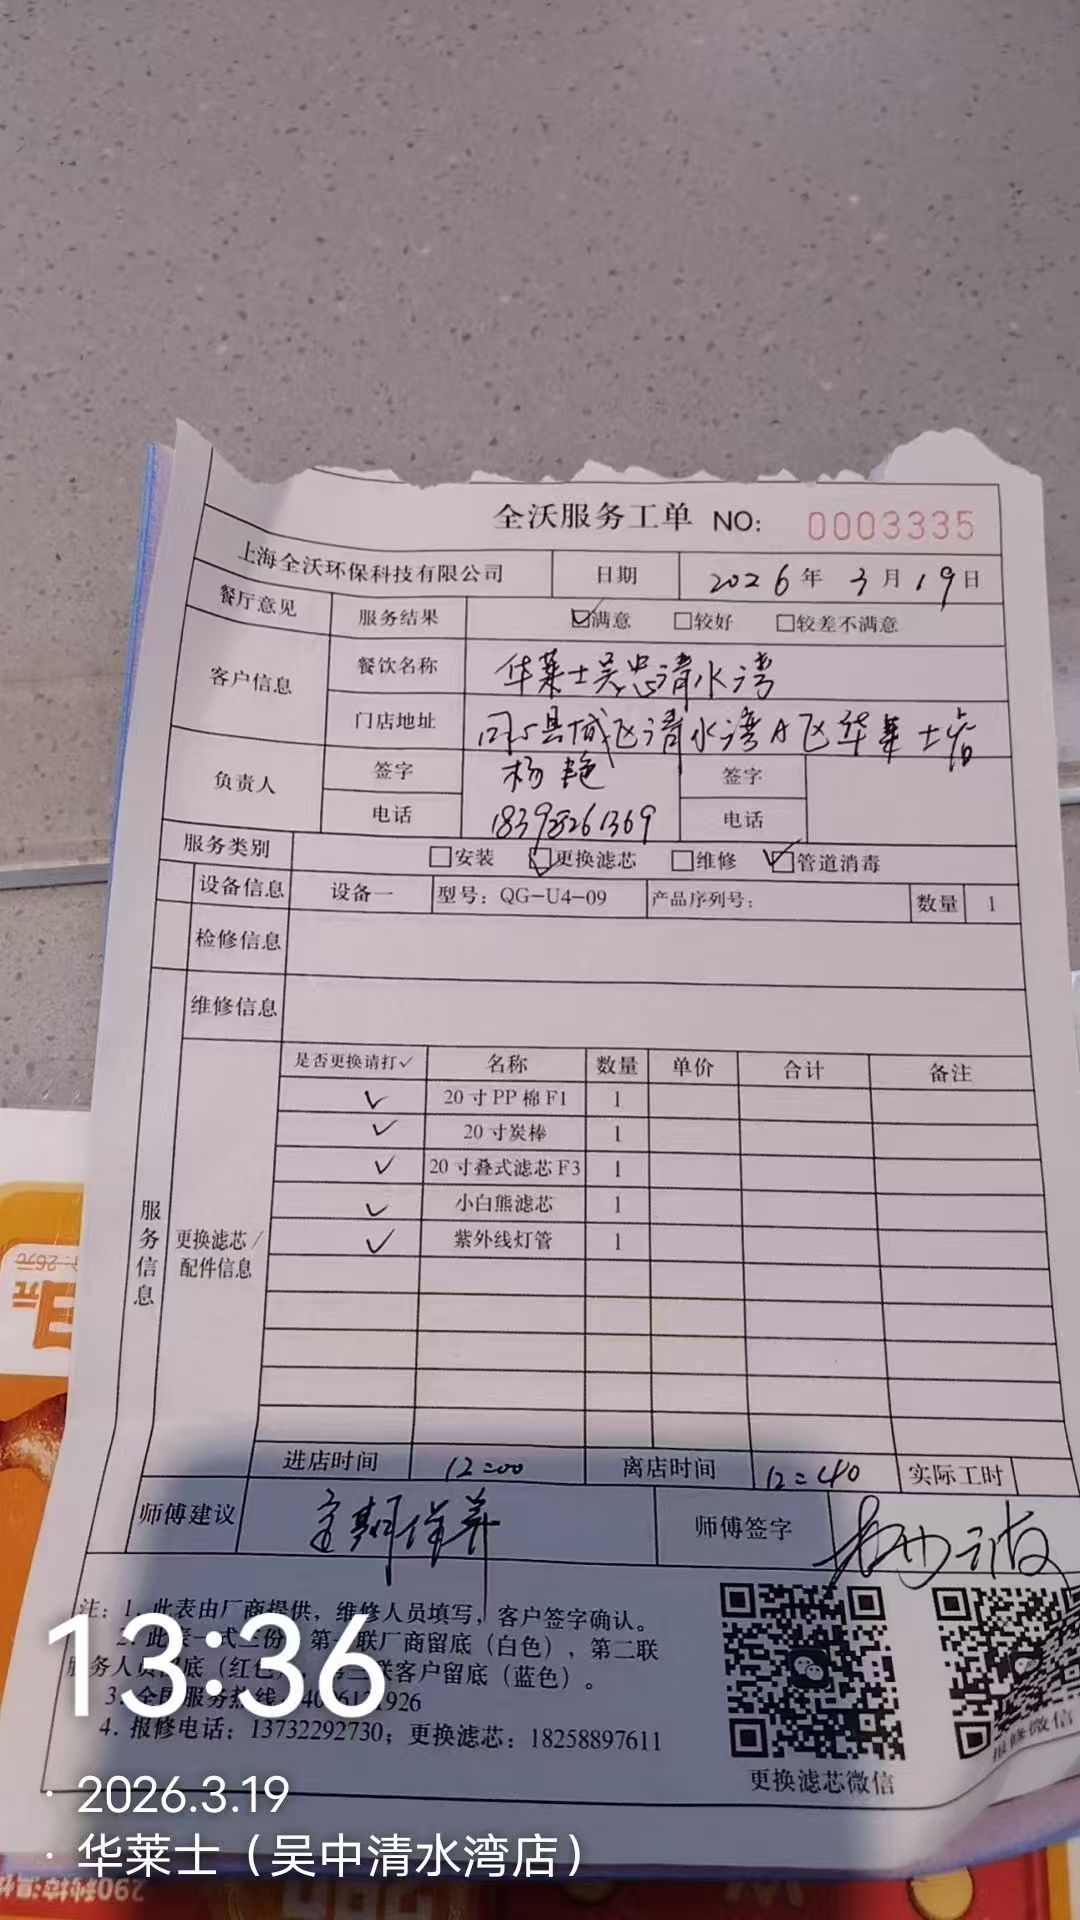 全沃服务工单 NO: 0003335
上海全沃环保科技有限公司 日期 2026年3月19日
餐厅意见 服务结果 ☑满意 □较好 □较差不满意
客户信息 餐饮名称 华莱士吴忠清水湾
门店地址 县城区清水湾A区华莱士
负责人 签字 杨艳 签字
电话 18398261369 电话
服务类别 □安装 ☑更换滤芯 □维修 ☑管道消毒
设备信息 设备一 型号：QG-U4-09 产品序列号： 数量 1
检修信息
维修信息
服务信息
更换滤芯/配件信息
是否更换请打✓ 名称 数量 单价 合计 备注
✓ 20寸PP棉F1 1
✓ 20寸炭棒 1
✓ 20寸叠式滤芯F3 1
✓ 小白熊滤芯 1
✓ 紫外线灯管 1
进店时间 12:00 离店时间 12:40 实际工时
师傅建议 定期保养 师傅签字
注：1. 此表由厂商提供，维修人员填写，客户签字确认。
2. 此表一式三份，第一联厂商留底（白色），第二联
服务人员留底（红色），第三联客户留底（蓝色）。
3. 全国服务热线 926
4. 报修电话：13732292730；更换滤芯：18258897611
更换滤芯微信
报修微信
13:36
2026.3.19
华莱士（吴中清水湾店）